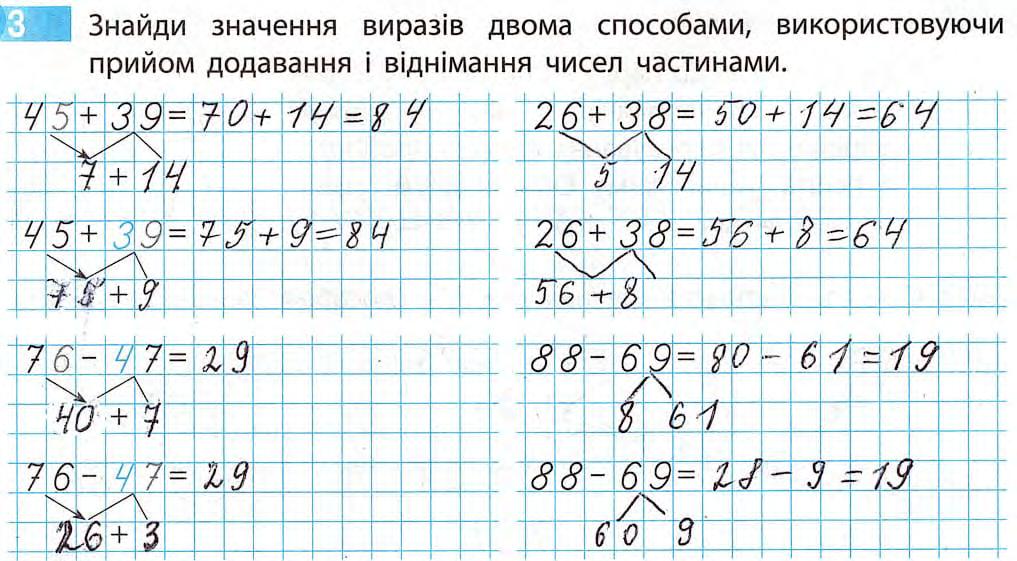 3 Знайди значення виразів двома способами, використовуючи
прийом додавання і віднімання чисел частинами.
45 + 39 = 70 + 14 = 84
7 + 14
45 + 39 = 75 + 9 = 84
75 + 9
76 - 47 = 29
40 + 7
76 - 47 = 29
26 + 3
26 + 38 = 50 + 14 = 64
5 14
26 + 38 = 56 + 8 = 64
56 + 8
88 - 69 = 80 - 61 = 19
8 61
88 - 69 = 28 - 9 = 19
60 9